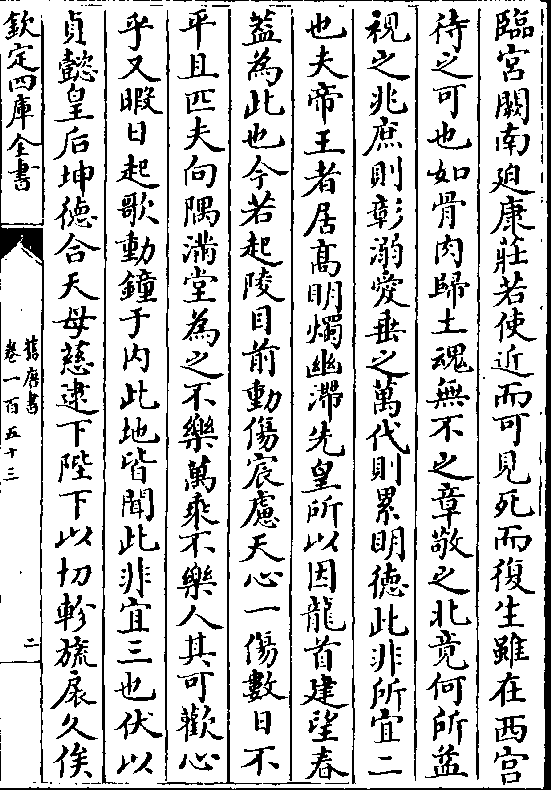 臨宮闕南廹康莊若使近而可見死而復生雖在西宫
待之可也如骨肉歸土魂無不之章敬之北竟何所益
視之兆庶則彰溺愛垂之萬代則累明德此非所宜二
也夫帝王者居髙明燭幽滯先皇所以因龍首建望春
葢為此也今若起陵目前動傷宸慮天心一傷數日不
平且匹夫向隅滿堂為之不樂萬乘不樂人其可歡心
乎又暇日起歌動鐘于内此地皆聞此非宜三也伏以
貞懿皇后坤德合天母慈逮下陛下以切軫旒扆久俟
欽定四庫全書
舊唐書
卷一百五十三
二